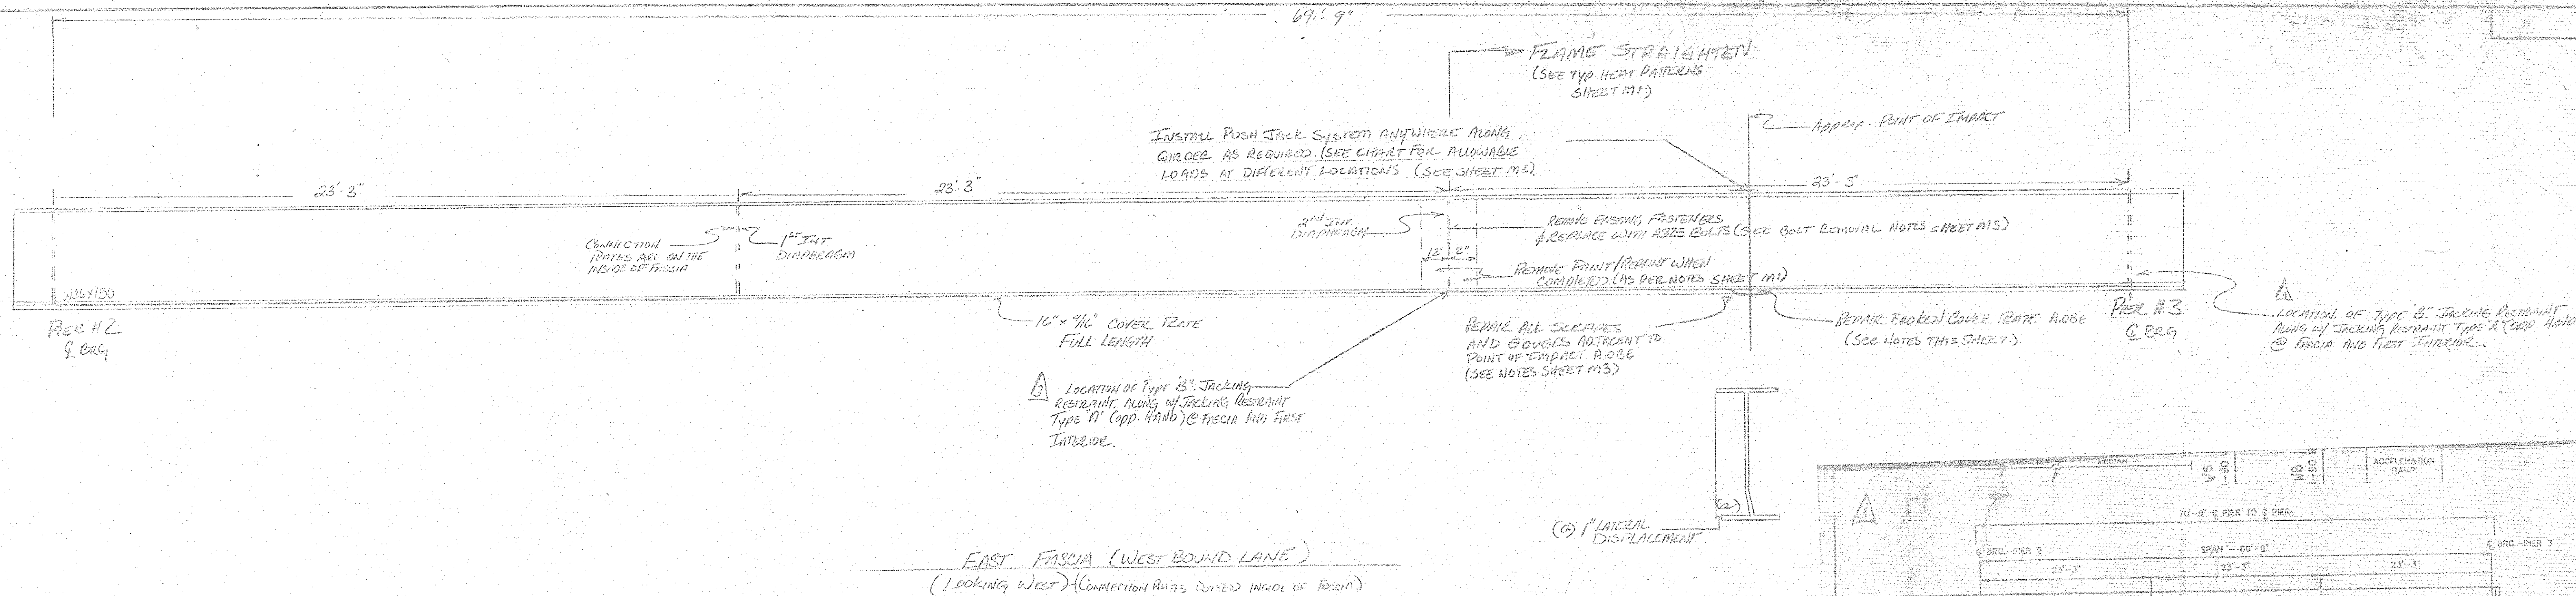 69'- 9"
FLAME STRAIGHTEN
(SEE TYP. HEAT PATTERNS
SHEET M1)
INSTALL PUSH JACK SYSTEM ANYWHERE ALONG
GIRDER AS REQUIRED. (SEE CHART FOR ALLOWABLE
LOADS AT DIFFERENT LOCATIONS (SEE SHEET M3)
APPROX. POINT OF IMPACT
23'-3"
23'-3"
23'-3"
CONNECTION
PLATES ARE ON THE
INSIDE OF FASCIA
1ST INT.
DIAPHRAGM
2ND INT.
DIAPHRAGM
12" 12"
REMOVE EXISTING FASTENERS
& REPLACE WITH A325 BOLTS (SEE BOLT REMOVAL NOTES SHEET M3)
REMOVE PAINT/REPAINT WHEN
COMPLETED (AS PER NOTES SHEET M1)
W36X150
PIER #2
℄ BRG.
16" x 9/16" COVER PLATE
FULL LENGTH
REPAIR ALL SCRAPES
AND GOUGES ADJACENT TO
POINT OF IMPACT
(SEE NOTES SHEET M3)
REPAIR BROKEN COVER PLATE
(SEE NOTES THIS SHEET)
PIER #3
℄ BRG
LOCATION OF TYPE "B" JACKING RESTRAINT
ALONG W/ JACKING RESTRAINT TYPE "A" (OPP. HAND)
@ FASCIA AND FIRST INTERIOR.
3
LOCATION OF TYPE "B" JACKING
RESTRAINT ALONG W/ JACKING RESTRAINT
TYPE "A" (OPP. HAND) @ FASCIA AND FIRST
INTERIOR.
(a)
(a) 1" LATERAL
DISPLACEMENT
EAST FASCIA (WEST BOUND LANE)
(LOOKING WEST) (CONNECTION PLATES INSIDE OF FASCIA)
MEDIAN
I-90
I-90
ACCELERATION
RAMP
70'-9" ℄ PIER TO ℄ PIER
℄ BRG.-PIER 2
SPAN - 69'-9"
℄ BRG.-PIER 3
23'-3"
23'-3"
23'-3"